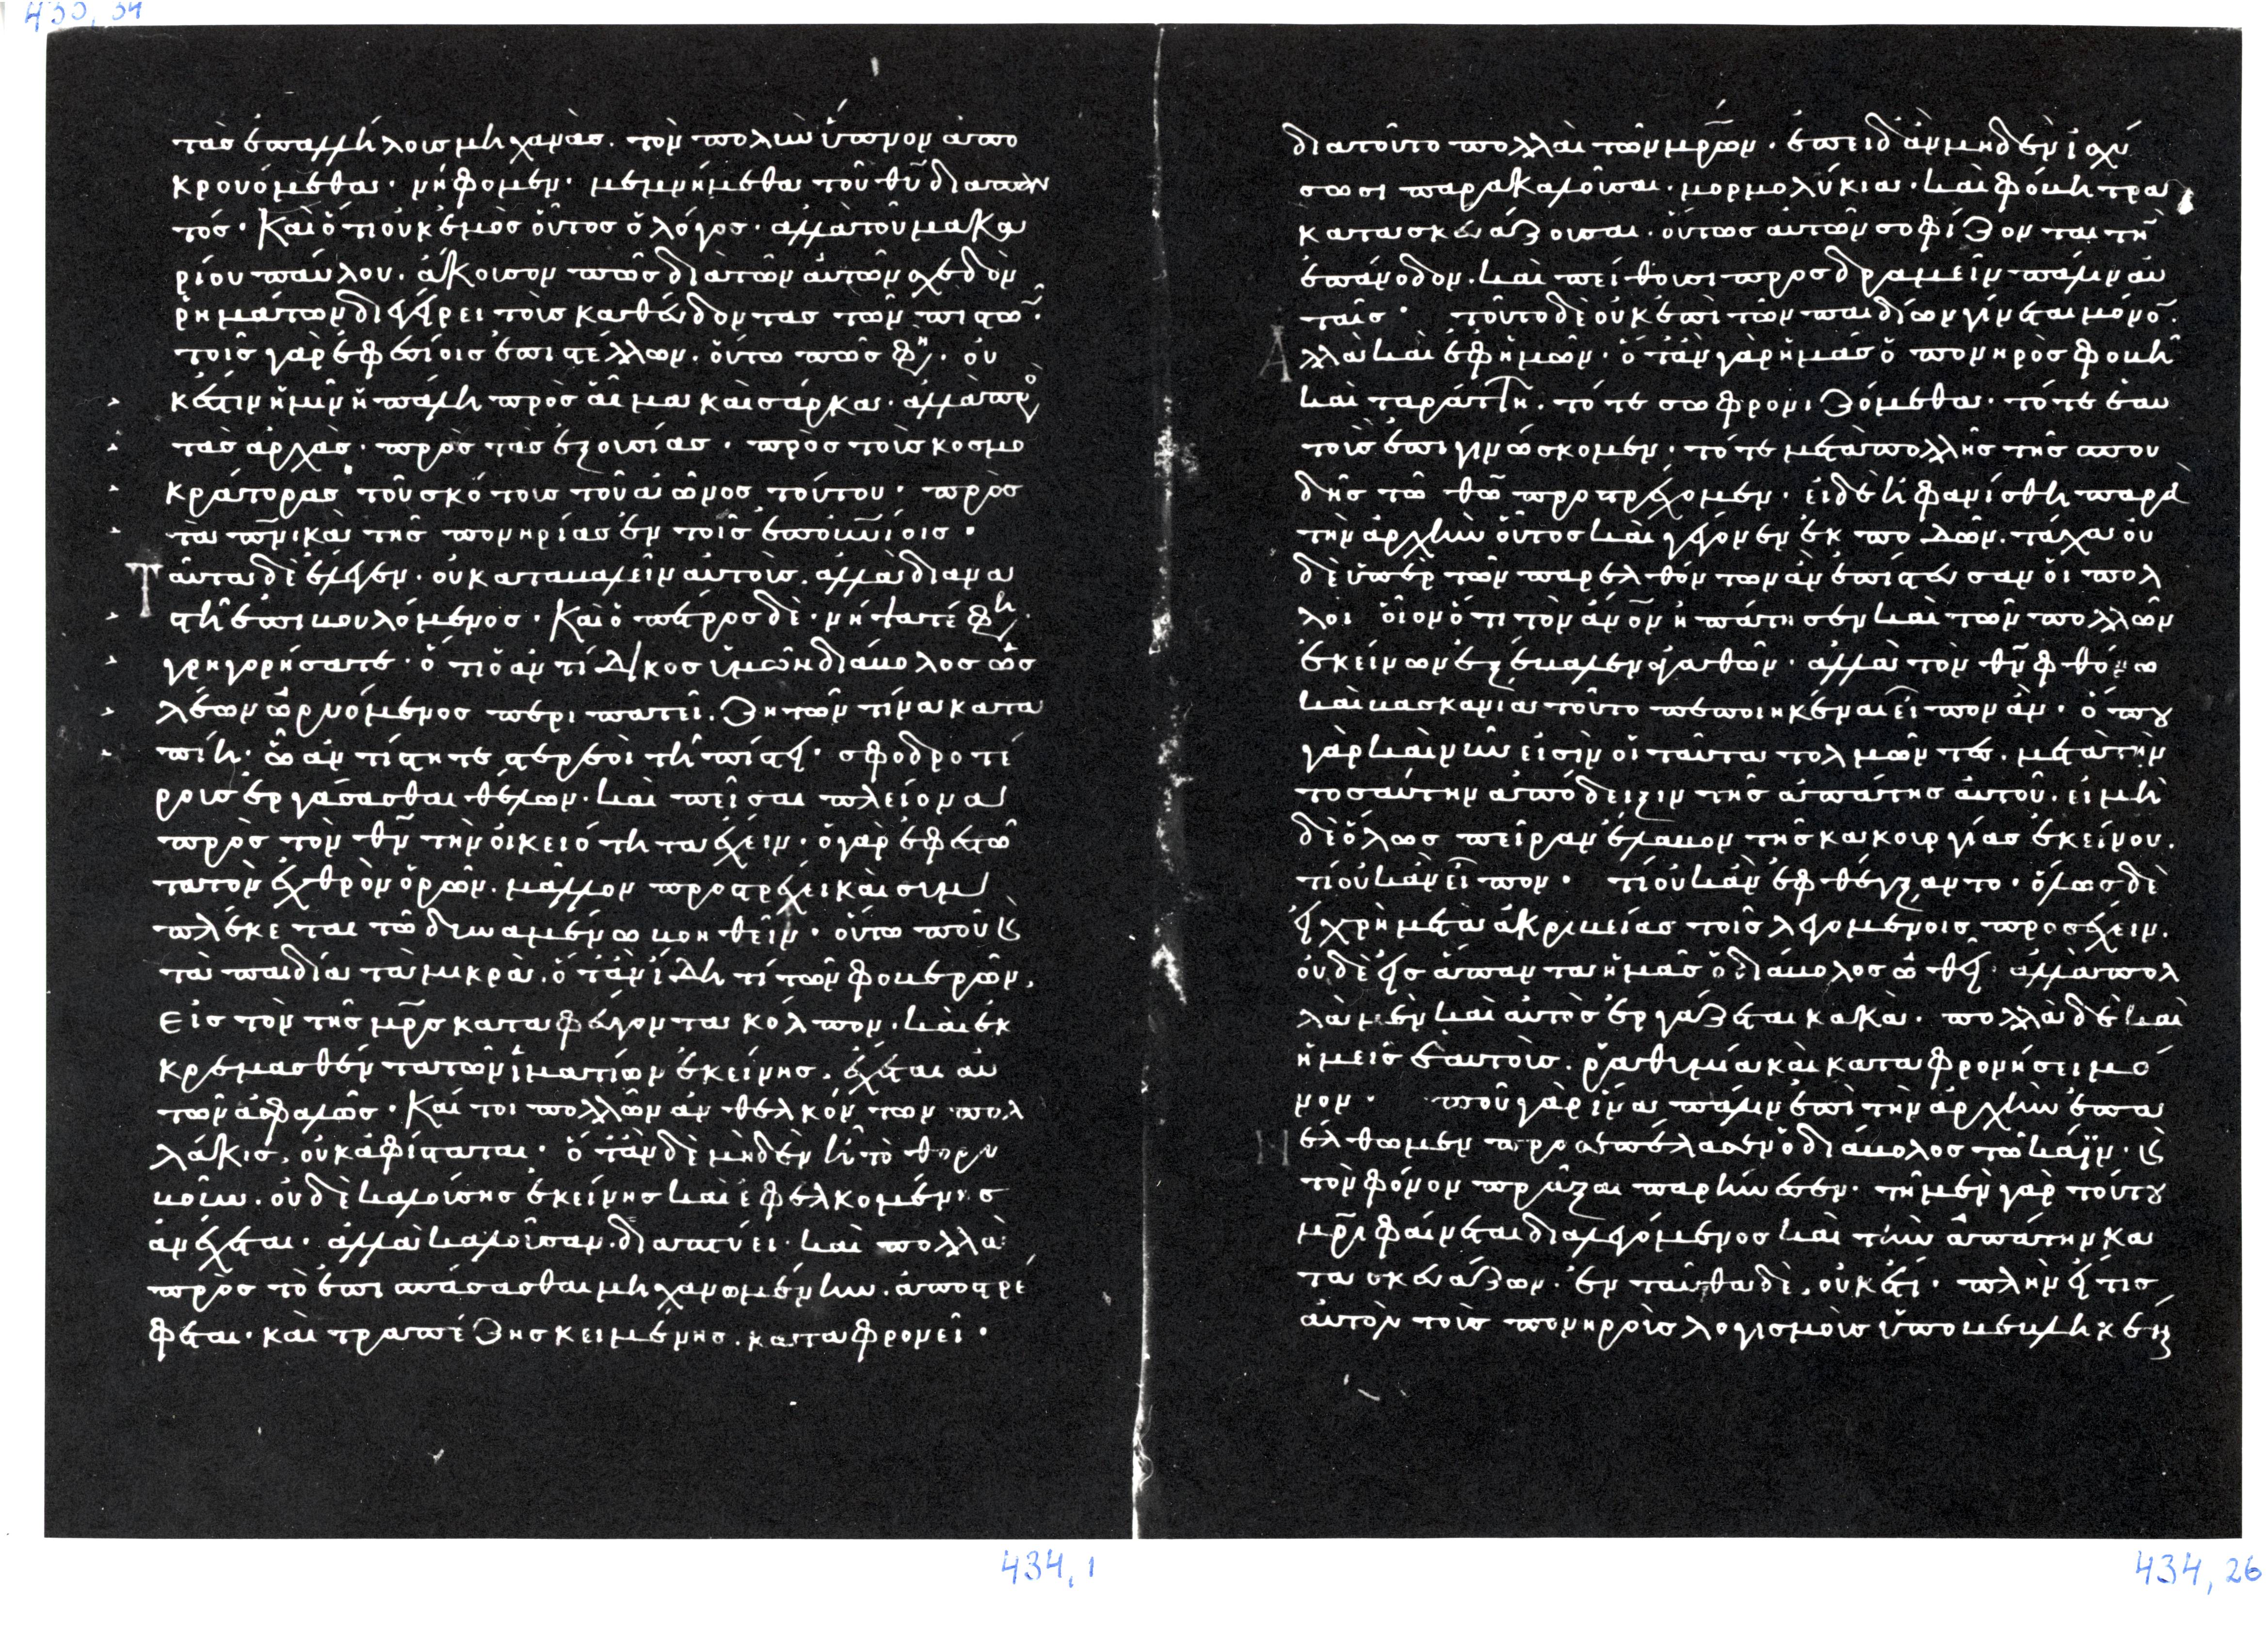 433, 34
τὰσ ἐπαλλήλουσ μηχανὰσ. τὸν πολὺν ὕπνον ἀπο
κρουόμεσθα. νήφομεν. μεμνήμεσθα τοῦ θυ διαπαν
τόσ. Καὶ ὅτι οὐκ ἐμὸσ οὗτοσ ὁ λόγοσ. ἀλλὰ τοῦ μακα
ρίου παύλου. ἄκουσον πῶσ διὰ τῶν αὐτῶν σχεδὸν
ῥημάτων διεγείρει τοὺσ καθεύδοντασ τῶν πιστῶ.
τοῖσ γὰρ ἐφεσίοισ ἐπιστέλλων. οὕτω πῶσ φη. οὐ
κέστιν ἡμῖν ἡ πάλη πρὸσ αἷμα καὶ σάρκα. ἀλλὰ πρὸ
τὰσ ἀρχὰσ. πρὸσ τὰσ ἐξουσίασ. πρὸσ τοὺσ κοσμο
κράτορασ τοῦ σκότουσ τοῦ αἰῶνοσ τούτου. πρὸσ
τὰ πνικὰ τῆσ πονηρίασ ἐν τοῖσ ἐπουνίοισ.
Ταῦτα δὲ ἔλεγεν. οὐ καταβαλεῖν αὐτοὺσ. ἀλλὰ διανα
στῆσαι βουλόμενοσ. Καὶ ὁ πέτροσ δὲ. νήψατέ φη.
γρηγορήσατε. ὅτι ὁ ἀντίδικοσ ὑμῶν διάβολοσ ὡσ
λέων ὠρυόμενοσ περιπατεῖ. ζητῶν τίνα κατα
πίη. ὧ ἀντίστητε στερεοὶ τῆ πίστει. σφοδροτέ
ρουσ ἐργάσασθαι θέλων. καὶ πεῖσαι πλείονα
πρὸσ τὸν θν τὴν οἰκειότητα ἔχειν. ὁ γὰρ ἐφεστῶ
τα τὸν ἐχθρὸν ὁρῶν. μᾶλλον προστρέχει καὶ συμ
πλέκεται τῶ δυναμένω βοηθεῖν. οὕτω που καὶ
τὰ παιδία τὰ μικρὰ. ὅταν ἴδη τί τῶν φοβερῶν.
εἰσ τὸν τῆσ μρσ καταφεύγονται κόλπον. καὶ ἐκ
κρεμασθέντα τῶν ἱματίων ἐκείνησ. ἔχεται αὐ
τῶν ἀσφαλῶσ. Καί τοι πολλῶν ἀνθελκόντων πολ
λάκισ. οὐκ ἀφίσταται. ὅταν δὲ μηδὲν ἦ τὸ θορυ
βοῦν. οὐδὲ καλούσησ ἐκείνησ καὶ ἐφελκομένησ
ἀνέχεται. ἀλλὰ καλοῦσαν. διαπτύει. καὶ πολλὰ
πρὸσ τὸ ἐπισπάσασθαι μηχανωμένην. ἀποστρέ
φεται. καὶ τραπέζησ κειμένησ. καταφρονεῖ.
διατοῦτο πολλαὶ τῶν μρων. ἐπειδὰν μηδὲν ἰσχύ
σωσι παρακαλοῦσαι. μορμολύκια. καὶ φόβητρα
κατασκευάζουσαι. οὕτωσ αὐτῶν σοφίζονται τὴ
ἐπάνοδον. καὶ πείθουσι προσδραμεῖν πάλιν αὐ
ταῖσ. τοῦτο δὲ οὐκ ἐπὶ τῶν παιδίων γίνεται μόνο.
Αλλὰ καὶ ἐφ ἡμῶν. ὅταν γὰρ ἡμᾶσ ὁ πονηρὸσ φοβῆ
καὶ ταράττη. τότε σωφρονιζόμεσθα. τότε ἑαυ
τοὺσ ἐπιγινώσκομεν. τότε μετὰ πολλῆσ τῆσ σπου
δῆσ τῶ θῶ προστρέχομεν. εἰ δὲ ἠφανίσθη παρὰ
τὴν ἀρχὴν οὗτοσ καὶ γέγονεν ἐκ ποδῶν. τάχα οὐ
δὲ ὑπὲρ τῶν παρελθόντων ἂν ἐπίστευσαν οἱ πολ
λοὶ οἷον ὅτι τὸν ἀνον ἠπάτησεν καὶ τῶν πολλῶν
ἐκείνων ἐξέβαλεν ἀγαθῶν. ἀλλὰ τὸν θν φθόνω
καὶ βασκανία τοῦτο πεποιηκέναι εἶπον ἄν. ὅπου
γὰρ καὶ νῦν εἰσὶν οἱ ταῦτα τολμῶντεσ. μετὰ τὴν
τοσαύτην ἀπόδειξιν τῆσ ἀπάτησ αὐτοῦ. εἰ μὴ
δὲ ὅλωσ πεῖραν ἔλαβον τῆσ κακουργίασ ἐκείνου.
τί οὐκ ἂν εἶπον. τί οὐκ ἂν ἐφθέγξαντο. ὅλωσ δὲ
εἰ χρὴ μετὰ ἀκριβείασ τοῖσ λεγομένοισ προσέχειν.
οὐδὲ εἰσ ἅπαντα ἡμᾶσ ὁ διάβολοσ ὠθεῖ. ἀλλὰ πολ
λὰ μὲν καὶ αὐτὸσ ἐργάζεται κακὰ. πολλὰ δὲ καὶ
ἡμεῖσ ἑαυτοὺσ. ῥαθυμία καὶ καταφρονήσει μό
νον. ποῦ γὰρ ἵνα πάλιν ἐπὶ τὴν ἀρχὴν ἐπα
Νέλθωμεν προσπέλασεν ὁ διάβολοσ τῶ κάϊν. καὶ
τὸν φόνον πρᾶξαι παρήνεσεν. τῆ μὲν γὰρ τούτου
μρι φαίνεται διαλεγόμενοσ καὶ τὴν ἀπάτην κα
τασκευάζων. ἐν ταῦθα δὲ. οὐκ ἔτι. πλὴν εἴ τισ
αὐτὸν τοὺσ πονηροὺσ λογισμοὺσ ὑποβεβληκέναι
434, 1
434, 26